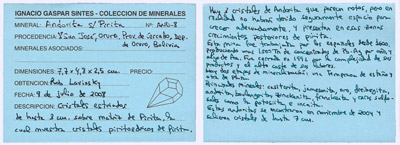 IGNACIO GASPAR SINTES - COLECCION DE MINERALES
MINERAL: Andorita s/ Pirita Nº: An10-8
PROCEDENCIA: Mina San José, Oruro, Prov. de Cercado, Dep.
de Oruro, Bolivia
MINERALES ASOCIADOS:
DIMENSIONES: 7,7 x 4,3 x 2,5 cm.
OBTENCION: Rob Lavinsky
FECHA: 9 de julio de 2008
DESCRIPCIÓN: Cristales estriados
de hasta 8 mm. sobre matriz de Pirita, la
cual muestra cristales piritoédricos de Pirita.
Hay 2 cristales de Andorita que parecen rotos, pero en
realidad no habían tenido seguramente espacio para
crecer adecuadamente, y presentan en esas zonas
crecimientos posteriores de pirita.
Esta mina fue trabajada por los españoles desde 1600,
produciendo unas 1500 Tn de concentrados de Pb-Ag por año y
algo de Sn. Fue cerrada en 1992 por la complejidad de sus
productos y el alto coste de su laboreo.
Hay dos etapas de mineralización: una temprana de estaño y
otra de Plata.
Principales minerales: casiterita, jamesonita, oro, tetraedrita,
andorita, boulangerita, zinckenita, franckeita, y raras sulfo-
sales como la
Estas andoritas se encontraron en noviembre de 2004 y
había cristales de hasta 3 cm.